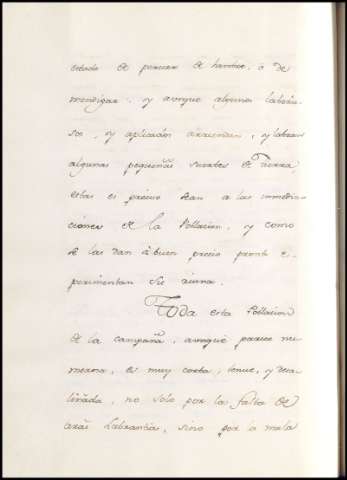 estado de pereser de hambre, ò de
mendigar. y aunque algunos laborio
sos, y aplicados arriendan, y labran
algunas pequeñas suertes de Tierra,
estas es preciso sean a las inmedia
ciones de la Poblacion, y como
se las dan à buen precio pronto ex
perimentan su ruina.
Toda esta Poblacion
de la campaña, aunque parece nu
merosa, es muy corta, tenue, y
no solo por las faltas de
Labranza, sino por la mala